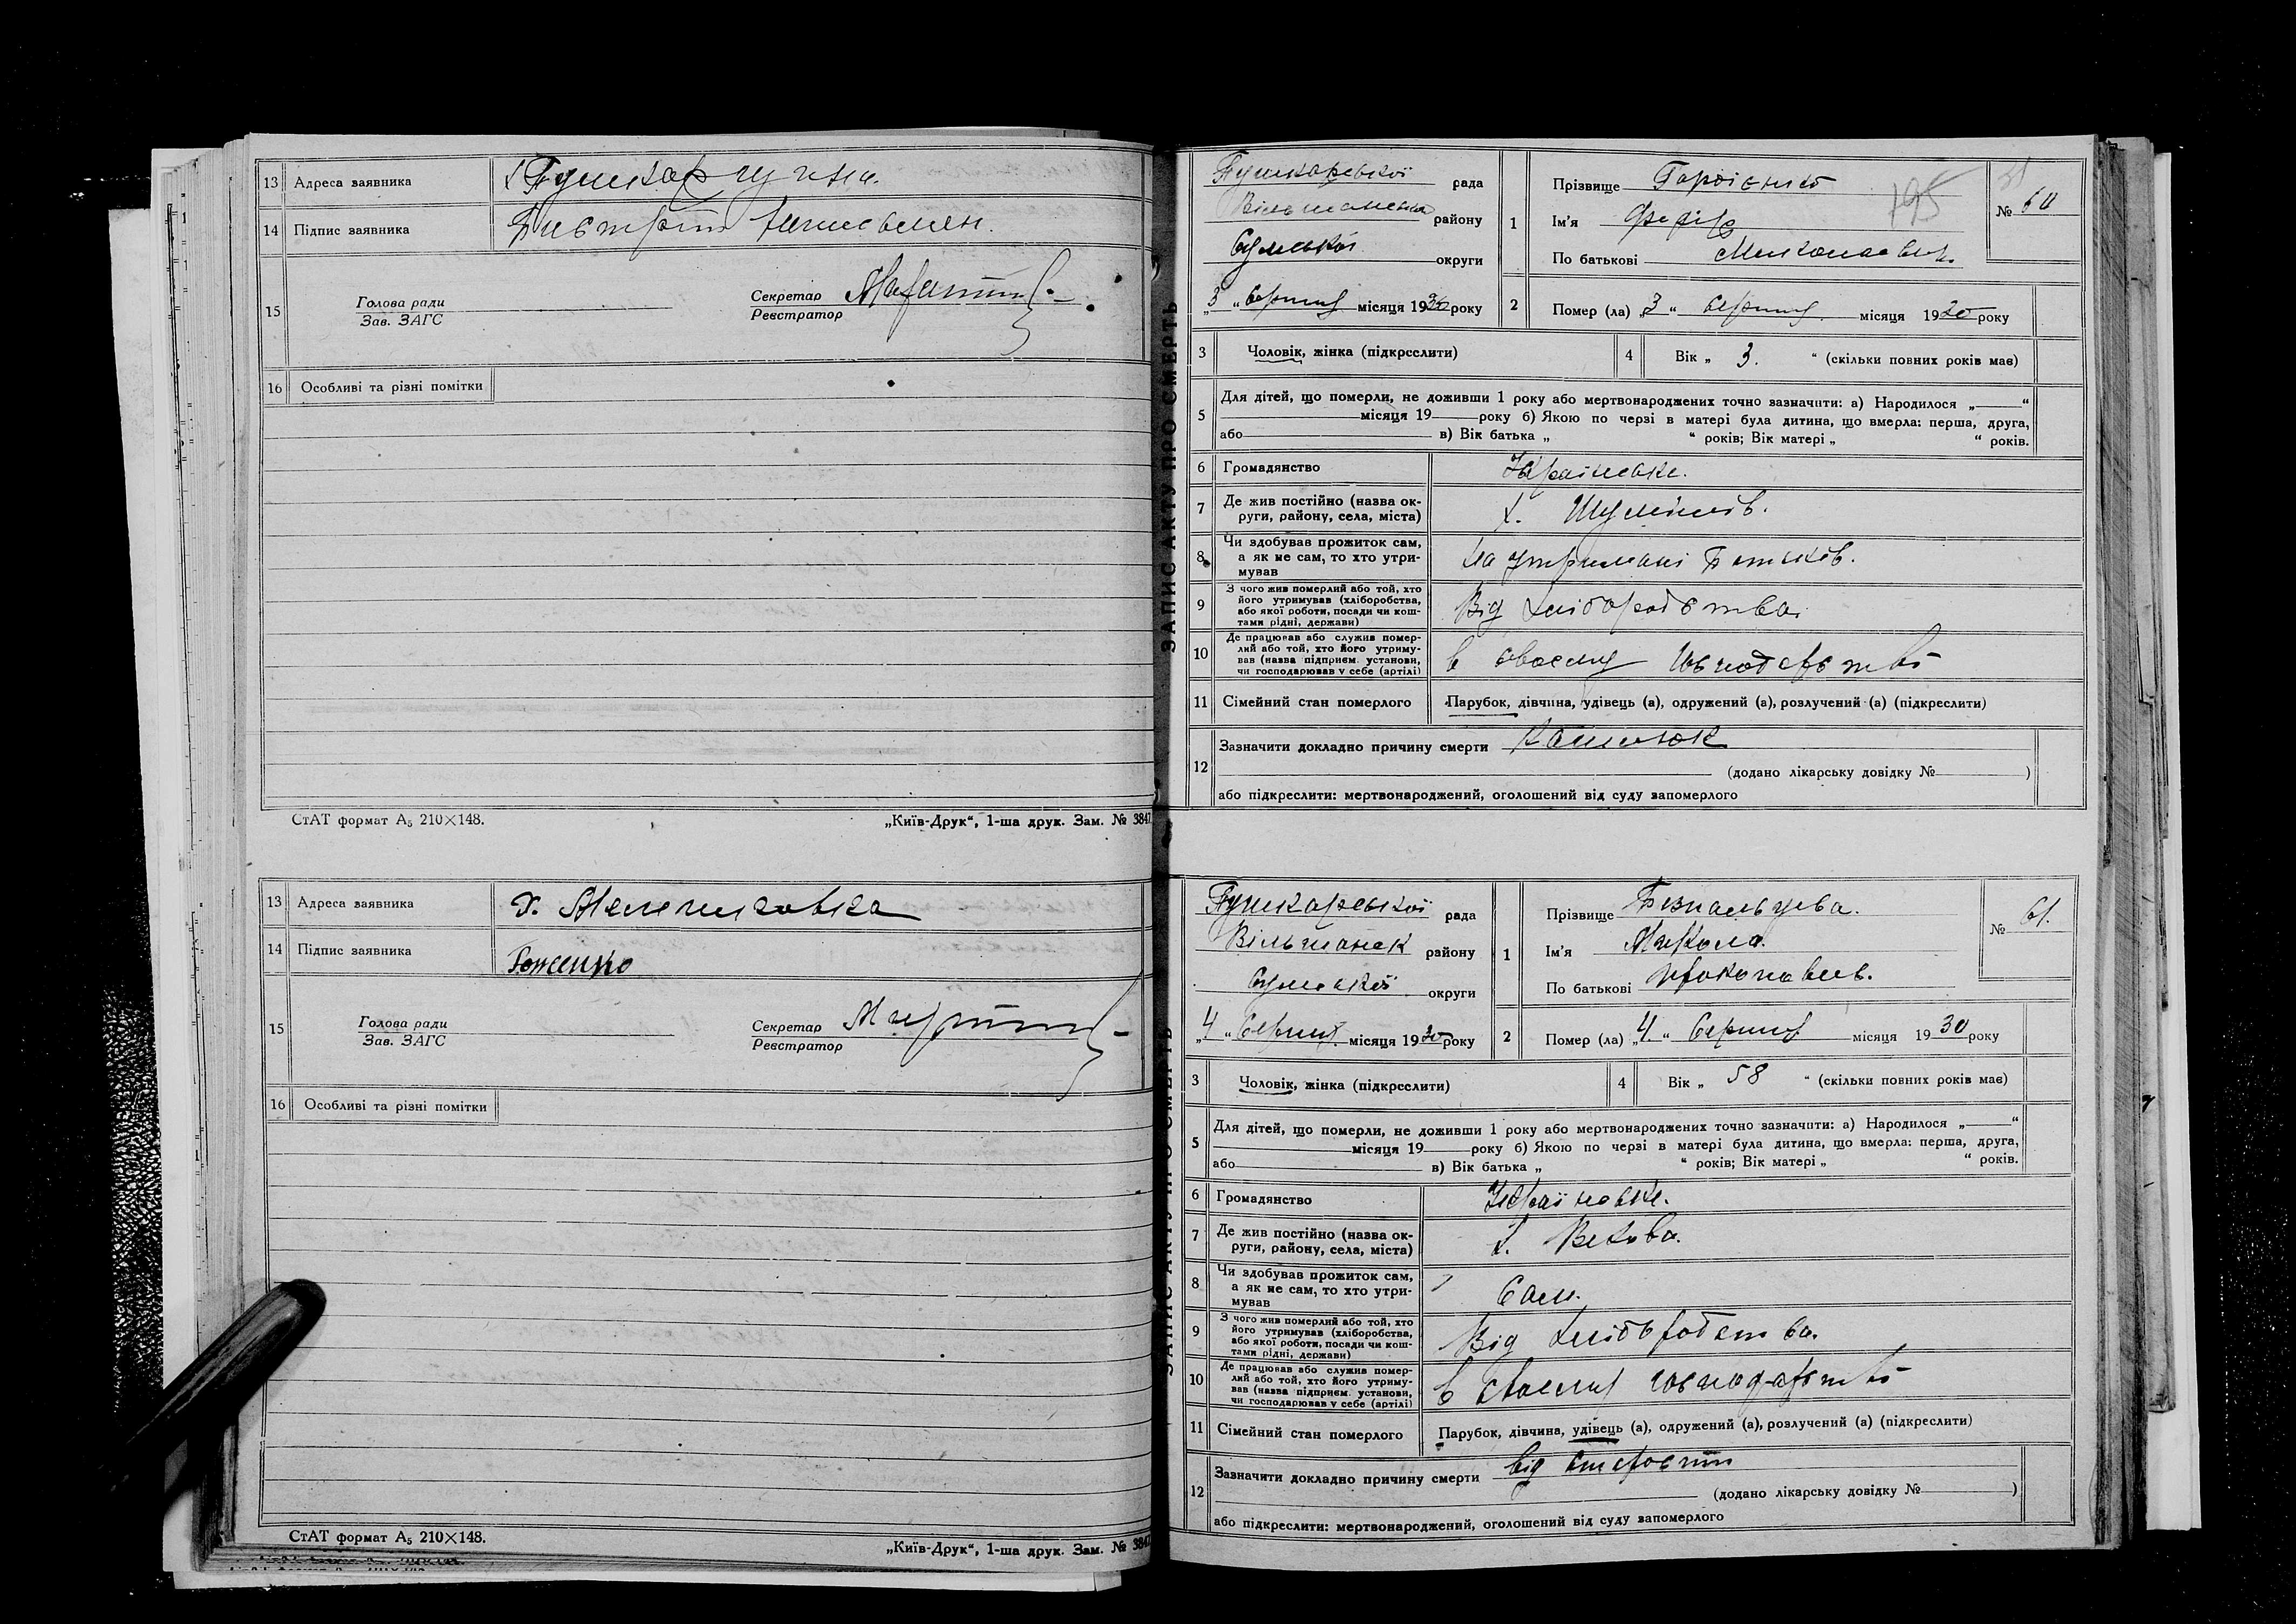 13 Адреса заявника
14 Підпис заявника
15 Голова ради
Зав. ЗАГС
Секретар
Реєстратор
16 Особливі та різні помітки
СтАТ формат А5 210×148.
„Київ-Друк“, 1-ша друк. Зам. № 3847
13 Адреса заявника х.
14 Підпис заявника
15 Голова ради
Зав. ЗАГС
Секретар
Реєстратор
16 Особливі та різні помітки
СтАТ формат А5 210×148.
„Київ-Друк“, 1-ша друк. Зам. № 384
ЗАПИС АКТУ ПРО СМЕРТЬ
Пушкаревської рада
району
Сумської округи
„3“ серпня місяця 1930 року
1 Прізвище
Ім'я Федір
По батькові Миколаевич.
195
№ 60
2 Помер (ла) „3“ серпня місяця 1930 року
3 Чоловік, жінка (підкреслити)
4 Вік „ 3. “ (скільки повних років має)
5 Для дітей, що померли, не доживши 1 року або мертвонароджених точно зазначити: а) Народилося „ “
місяця 19 року б) Якою по черзі в матері була дитина, що вмерла: перша, друга,
або в) Вік батька „ “ років; Вік матері „ “ років.
6 Громадянство Українське.
7 Де жив постійно (назва ок-
руги, району, села, міста) х.
8 Чи здобував прожиток сам,
а як не сам, то хто утри-
мував на утримані Батьків.
9 З чого жив померлий або той, хто
його утримував (хліборобства,
або якої роботи, посади чи кош-
тами рідні, держави) Від хліборобства.
10 Де працював або служив помер-
лий або той, хто його утриму-
вав (назва підприєм. установи,
чи господарював у себе (артілі) в своєму господарстві
11 Сімейний стан померлого Парубок, дівчина, удівець (а), одружений (а), розлучений (а) (підкреслити)
12 Зазначити докладно причину смерти Кашлюк
(додано лікарську довідку № )
або підкреслити: мертвонароджений, оголошений від суду запомерлого
Пушкаревської рада
Вільшанськ району
Сумської округи
„4“ Серпня місяця 1930 року
1 Прізвище
Ім'я Микола.
По батькові
№ 61.
2 Помер (ла) „4.“ Серпня місяця 1930 року
3 Чоловік, жінка (підкреслити)
4 Вік „ 58 “ (скільки повних років має)
5 Для дітей, що померли, не доживши 1 року або мертвонароджених точно зазначити: а) Народилося „ “
місяця 19 року б) Якою по черзі в матері була дитина, що вмерла: перша, друга,
або в) Вік батька „ “ років; Вік матері „ “ років.
6 Громадянство Українське.
7 Де жив постійно (назва ок-
руги, району, села, міста) х.
8 Чи здобував прожиток сам,
а як не сам, то хто утри-
мував Сам.
9 З чого жив померлий або той, хто
його утримував (хліборобства,
або якої роботи, посади чи кош-
тами рідні, держави) Від хліборобства.
10 Де працював або служив помер-
лий або той, хто його утриму-
вав (назва підприєм. установи,
чи господарював у себе (артілі) в своєму господарстві
11 Сімейний стан померлого Парубок, дівчина, удівець (а), одружений (а), розлучений (а) (підкреслити)
12 Зазначити докладно причину смерти від старости
(додано лікарську довідку № )
або підкреслити: мертвонароджений, оголошений від суду запомерлого